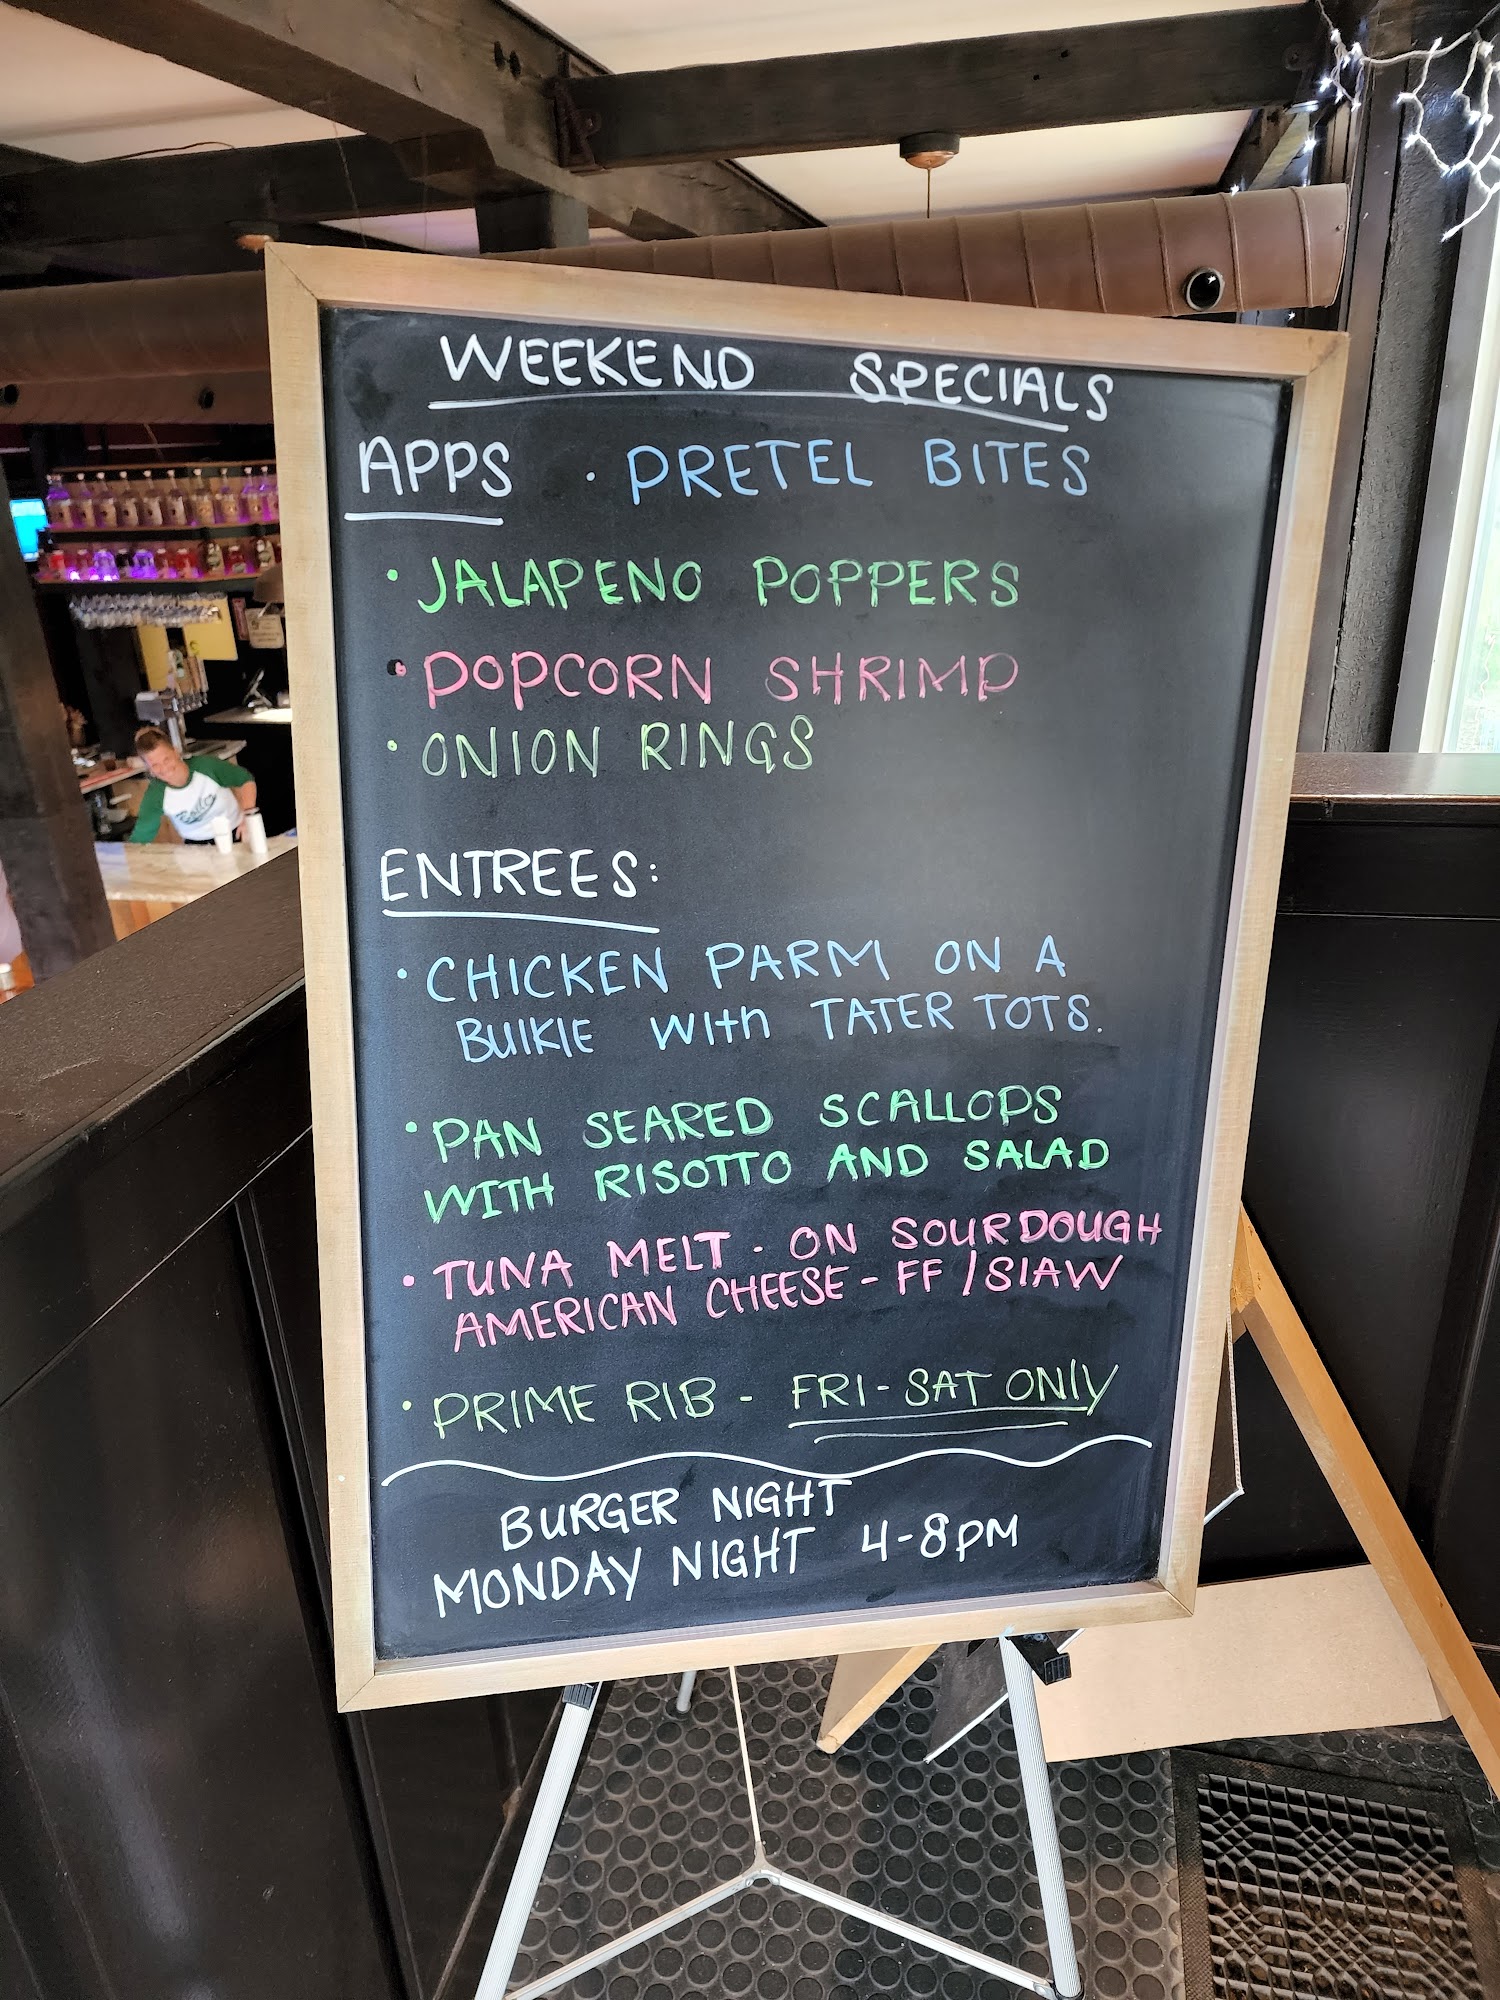 WEEKEND SPECIALS
APPS · PRETEL BITES
· JALAPENO POPPERS
· POPCORN SHRIMP
· ONION RINGS
ENTREES:
· CHICKEN PARM ON A
BUlKIE WIth TATER TOTS.
· PAN SEARED SCALLOPS
WITH RISOTTO AND SALAD
· TUNA MELT - ON SOURDOUGH
AMERICAN CHEESE - FF / SlAW
· PRIME RIB - FRI - SAT ONlY
BURGER NIGHT
MONDAY NIGHT 4-8PM